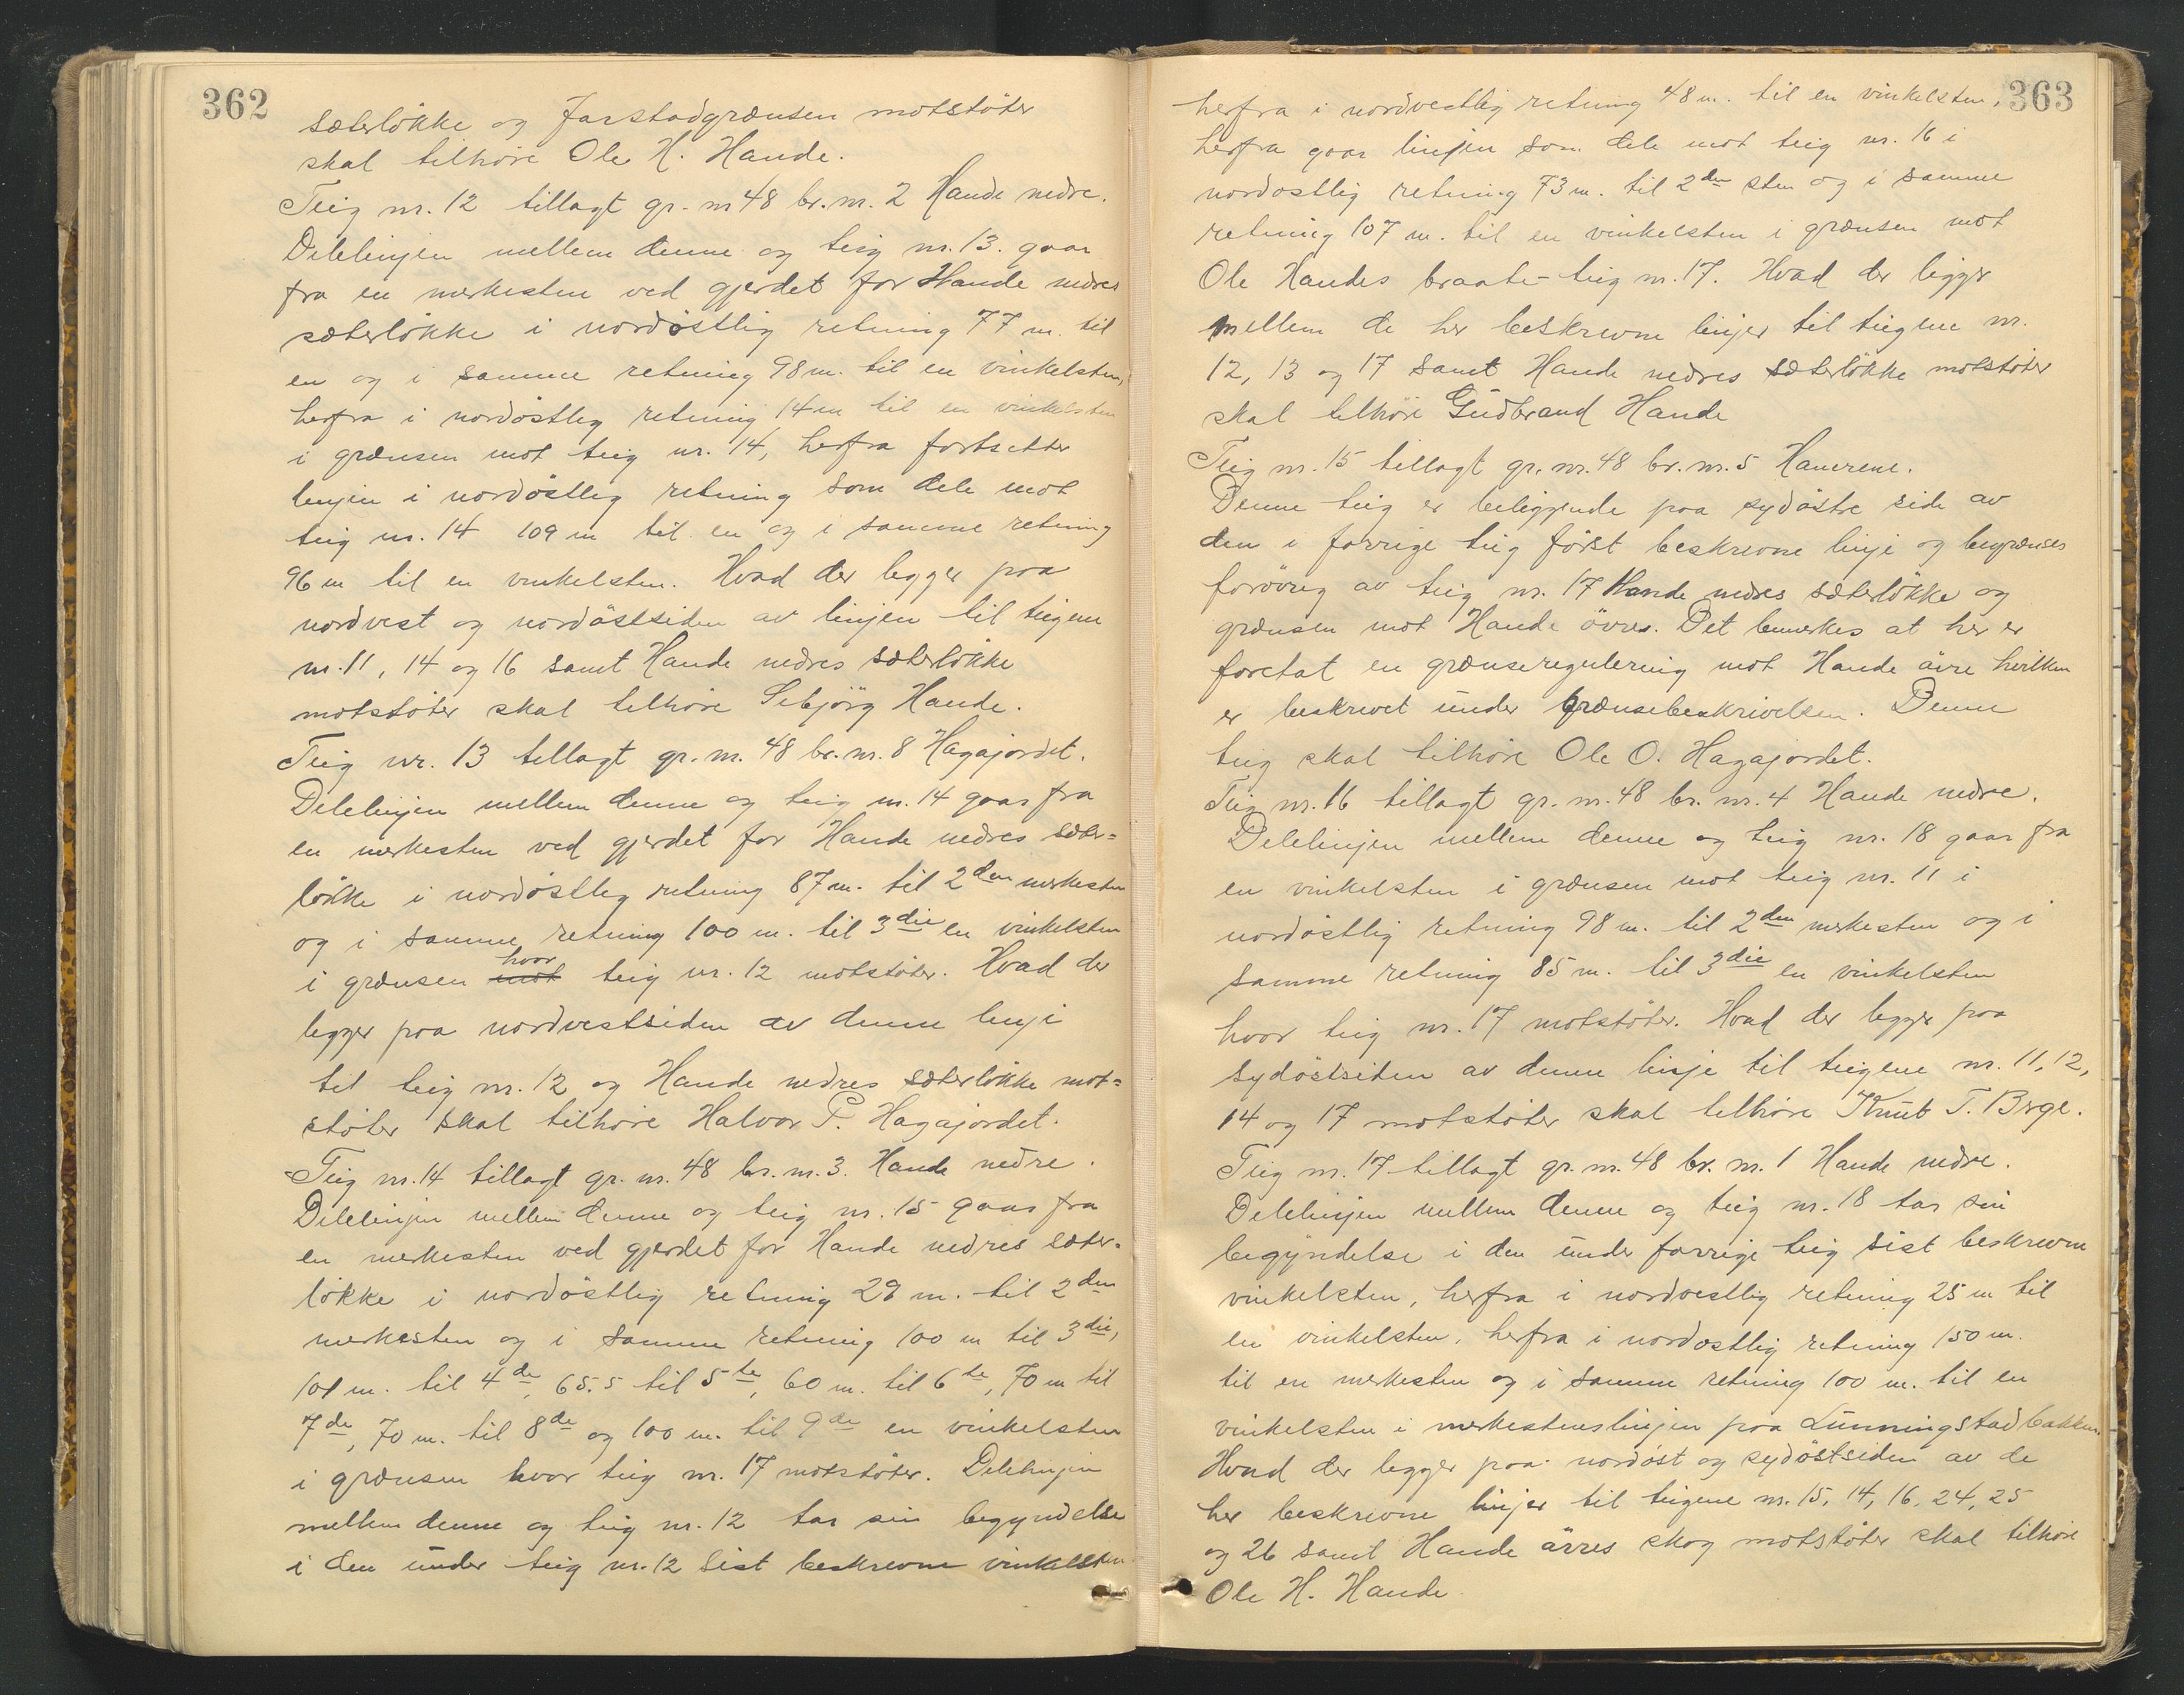 362
sæterlökke og Jarstadgrænsen motstöter
skal tilhöre Ole H. Hande.
Teig nr. 12 tillagt gr. nr 48 br. nr. 2 Hande nedre.
Delelinjen mellem denne og teig nr. 13. gaar
fra en merkesten ved gjerdet for Hande nedres
sæterlökke i nordöstlig retning 77 m. til
en og i samme retning 98 m. til en vinkelsten,
herfra i nordöstlig retning 14 m til en vinkelsten
i grænsen mot teig nr. 14, herfra fortsetter
linjen i nordöstlig retning som dele mot
teig nr. 14 109 m til en og i samme retning
96 m til en vinkelsten. Hvad der ligger paa
nordvest og nordöstsiden av linjen til teigene
nr. 11, 14 og 16 samt Hande nedres sæterlökke
motstöter skal tilhöre Sebjörg Hande.
Teig nr. 13 tillagt gr. nr. 48 br. nr. 8 Hagajordet.
Delelinjen mellem denne og teig nr. 14 gaar fra
en merkesten ved gjerdet for Hande nedres sæter=
lökke i nordöstlig retning 87 m. til 2den merkesten
og i samme retning 100 m. til 3die en vinkelsten
i grænsen mot hvor teig nr. 12 motstöter. Hvad der
ligger paa nordvestsiden av denne linje
til teig nr. 12 og Hande nedres sæterlökke mot=
stöter skal tilhöre Halvor P. Hagajordet.
Teig nr. 14 tillagt gr. nr. 48 br. nr. 3. Hande nedre.
Delelinjen mellem denne og teig nr. 15 gaar fra
en merkesten ved gjerdet for Hande nedres sæter=
lökke i nordöstlig retning 29 m. til 2den
merkesten og i samme retning 100 m til 3die,
101 m. til 4de, 65.5 til 5te, 60 m. til 6te, 70 m til
7de, 70 m. til 8de og 100 m. til 9de en vinkelsten
i grænsen hvor teig nr. 17 motstöter. Delelinjen
mellem denne og teig nr. 12 tar sin begyndelse
i den under teig nr. 12 sist beskrevne vinkelsten
363
herfra i nordvestlig retning 48 m. til en vinkelsten,
herfra gaar linjen som dele mot teig nr. 16 i
nordostlig retning 73 m. til 2den sten og i samme
retning 107 m. til en vinkelsten i grænsen mot
Ole Handes braate-teig nr. 17. Hvad der ligger
mellem de her beskrevne linjer til teigene nr.
12, 13 og 17 samt Hande nedres sæterlökke motstöter
skal tilhöre Gudbrand Hande
Teig nr. 15 tillagt gr. nr. 48 br. nr. 5 Hanerene.
Denne teig er beliggende paa sydöstre side av
den i forrige teig först beskrevne linje og begrænses
forövrig av teig nr. 17 Hande nedres sæterlökke og
grænsen mot Hande övres. Det bemerkes at her er
foretat en grænseregulering mot Hande övre hvilken
er beskrevet under grænsebeskrivelsen. Denne
teig skal tilhöre Ole O. Hagajordet.
Teig nr. 16 tillagt gr. nr. 48 br. nr. 4 Hande nedre.
Delelinjen mellem denne og teig nr. 18 gaar fra
en vinkelsten i grænsen mot teig nr. 11 i
nordöstlig retning 98 m. til 2den merkesten og i
samme retning 85 m. til 3die en vinkelsten
hvor teig nr. 17 motstöter. Hvad der ligger paa
sydöstsiden av denne linje til teigene nr. 11, 12,
14 og 17 motstöter skal tilhöre Knut T. Berge.
Teig nr. 17 tillagt gr. nr. 48 br. nr. 1 Hande nedre.
Delelinjen mellem denne og teig nr. 18 tar sin
begyndelse i den under forrige teig sist beskrevne
vinkelsten, herfra i nordvestlig retning 25 m til
en vinkelsten, herfra i nordostlig retning 150 m.
til en merkesten og i samme retning 100 m. til en
vinkelsten i merkestenslinjen paa Lunningstadbakken.
Hvad der ligger paa nordöst og sydöstsiden av de
her beskrevne linjer til teigene nr. 15, 14, 16, 24, 25
og 26 samt Hande övres skog motstöter skal tilhöre
Ole H. Hande.